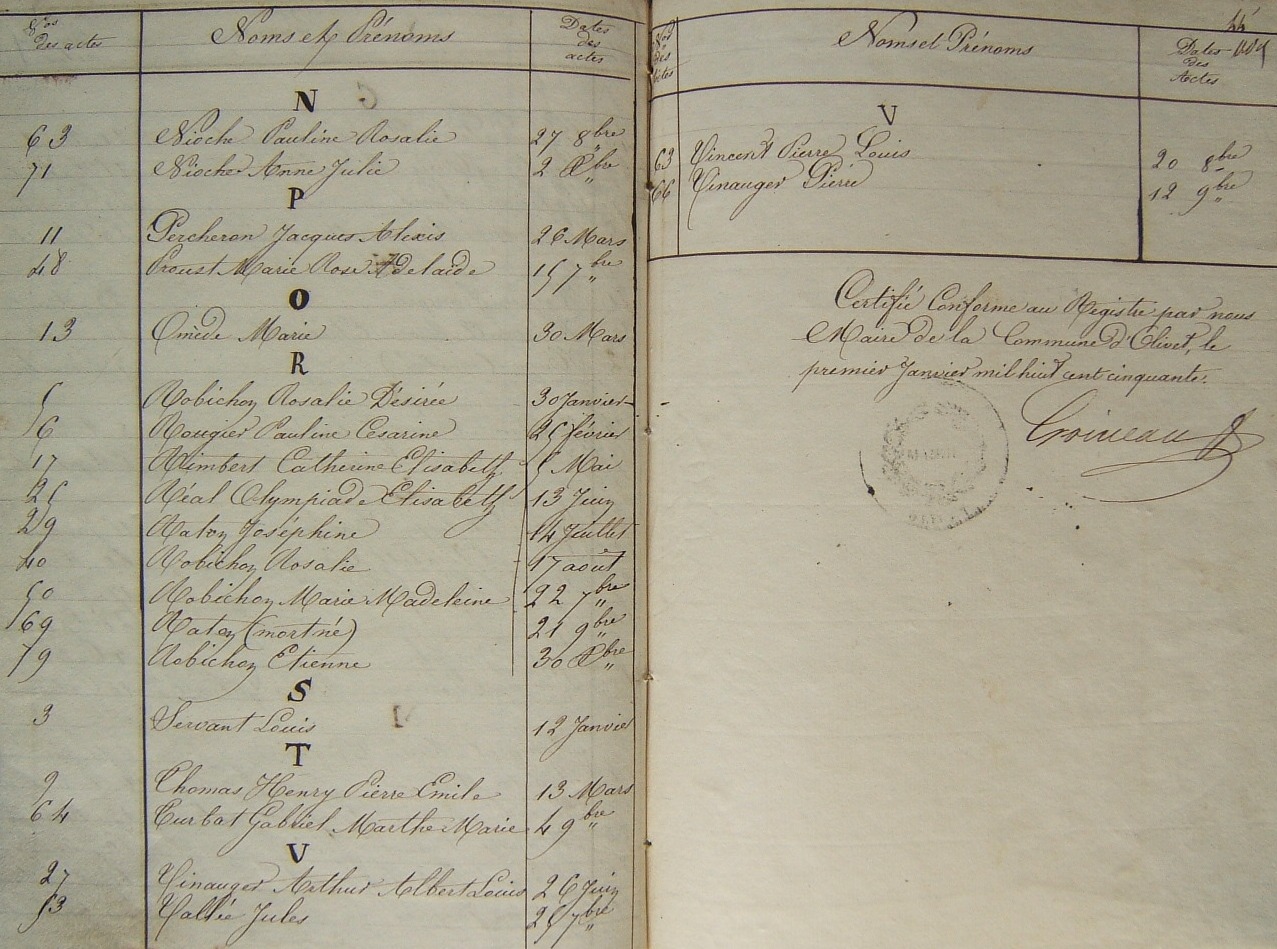 Nos des actes Noms et Prénoms Dates des actes
N
63 Nioche Pauline Rosalie 27 8bre
71 Nioche Anne Julie 2 Xbre „
P
11 Percheron Jacques Alexis 26 Mars
48 Proust Marie Rose Adelaide 15 7bre „
O
13 Omède Marie 30 Mars
R
5 Robichon Rosalie Désirée 30 Janvier
6 Rougier Pauline Cesarine 25 février
17 Rimbert Catherine Elisabeth 5 Mai
25 Réal Olympiade Elisabeth 13 Juin
29 Raton Joséphine 14 Juillet
40 Robichon Rosalie 17 août
50 Robichon Marie Madeleine 22 7bre „
69 Raton (mort né) 21 9bre „
79 Robichon Etienne 30 Xbre „
S
3 Servant Louis 12 Janvier
T
9 Thomas Henry Pierre Emile 13 Mars
64 Turbat Gabriel Marthe Marie 4 9bre „
V
27 Vinauger Arthur Albert Louis 26 Juin
53 Vallée Jules 25 7bre „
44
Nos des actes Noms et Prénoms Dates des Actes
V
63 Vincent Pierre Louis 20 8bre
66 Vinauger Pierre 12 9bre „
Certifié Conforme au Registre par nous
Maire de la Commune d'Olivet, le
premier Janvier mil huit cent cinquante.